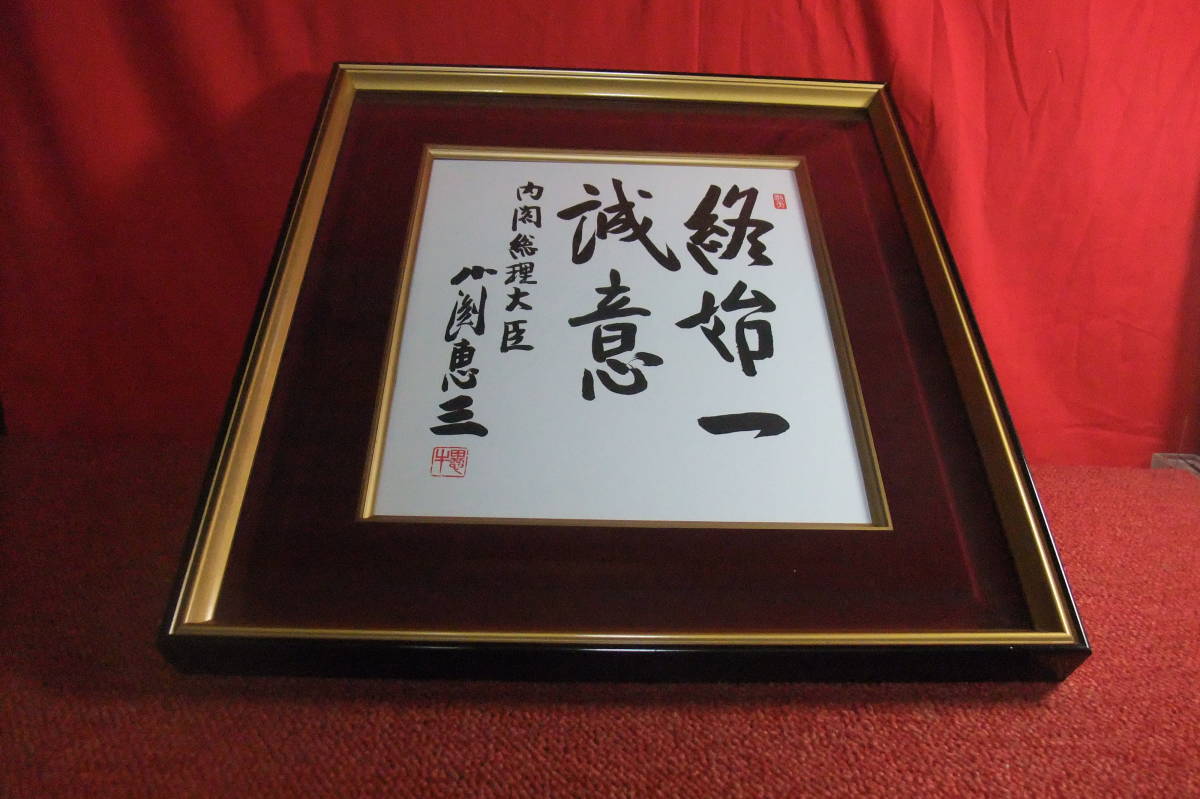 終始一
誠意
内閣総理大臣
小渕恵三